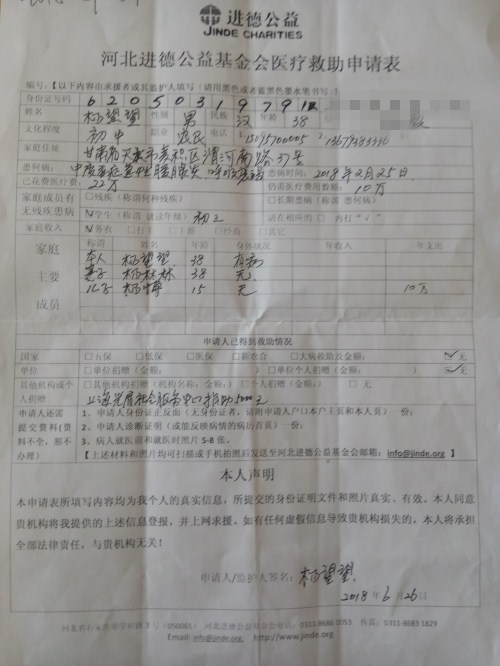 进德公益
JINDE CHARITIES
河北进德公益基金会医疗救助申请表
编号：【以下内容由求援者或其监护人填写（请用黑色或者蓝黑色墨水笔书写：】
身份证号码 620503197912
姓名 杨望望 性别 男 汉 年龄 38
文化程度 初中 职业 农民 电话 15095700005
家庭住址 甘肃省天水市麦积区渭河南路
患何病： 中度重症急性胰腺炎 呼吸衰竭 患病时间：2018年2月25日
已花费医疗费： 22万 仍需医疗费用数额： 10万
家庭成员有无残疾患病 □残疾（称谓何种残疾） □长期患病（称谓 患何病）
☑学生（称谓 就读年级） 初三 请在相应的 □ 内打“√”
家庭收入 ☑务农 □打工 □经商 □其它
家庭主要成员 称谓 姓名 年龄 身体状况 年收入 年支出
本人 杨望望 38 有病
妻子 杨林林 38 无
儿子 15 无 10万
申请人已得到救助情况
国家 □五保 □低保 □医保 □新农合 □大病救助及金额： ☑无
单位 □单位捐赠（金额： ） □单位个人捐赠（金额： ） ☑无
其他机构或个人捐赠 □其他机构捐赠（机构名称：金额：） □个人捐赠（金额： ） □无
上海光启社会服务中心捐助5000元
申请人还需提交资料(资料不全，那不办理) 1、申请人身份证正反面（无身份证者，请附申请人户口本户主页和本人页）一份；
2、申请人诊断证明（或能反映病情的病历首页）一份；
3、病人就医前和就医时照片 5-8 张。
【上述材料和照片均可扫描或手机拍照后发送至河北进德公益基金会邮箱：info@jinde.org】
本人声明
本申请表所填写内容均为我个人的真实信息，所提交的身份证明文件和照片真实、有效。本人同意
贵机构将我提供的上述信息登报、并上网求援。如有任何虚假信息导致贵机构损失的，本人将承担
全部法律责任，与贵机构无关！
申请人/监护人签名： 杨望望
2018年6月26日
（050061） 河北进德公益基金会电话：0311-8686 0053 传真：0311-8683 1829
Email: info@jinde.org http://www.jinde.org